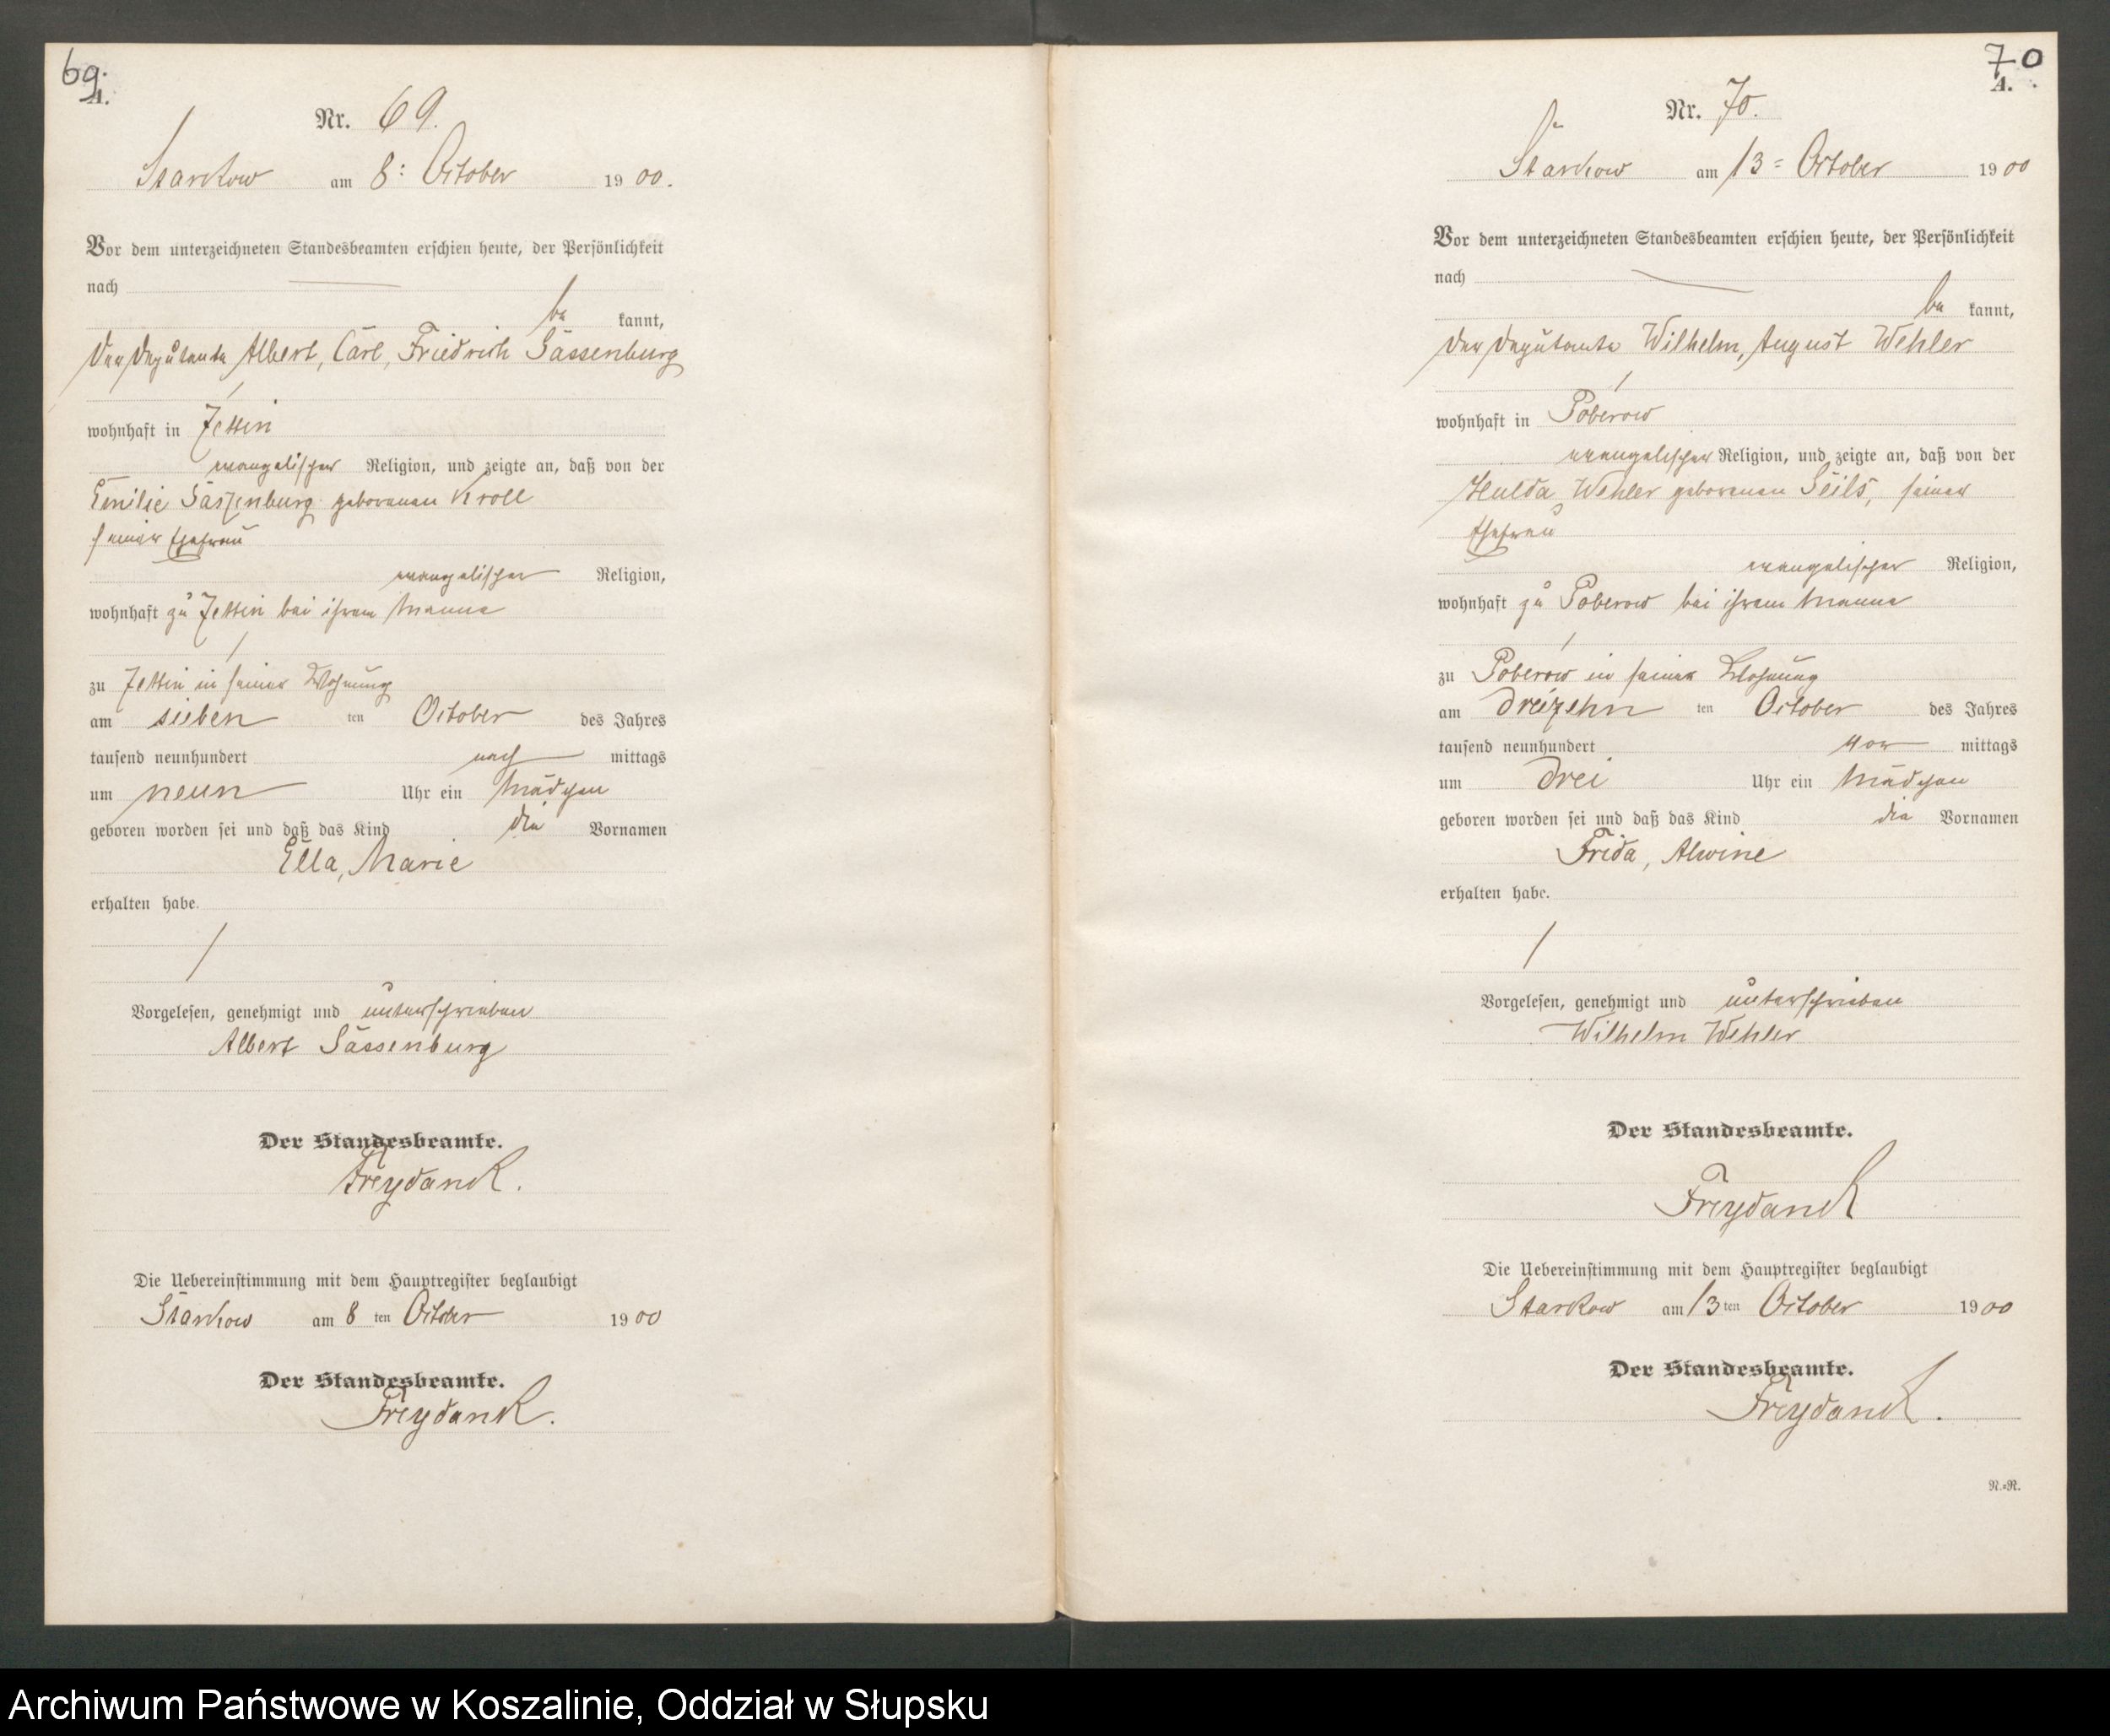 69.
A.
Nr. 69.
Starckow am 8. October 1900.
Vor dem unterzeichneten Standesbeamten erschien heute, der Persönlichkeit
nach
be kannt,
der Deputante Albert, Carl, Friedrich Sassenburg
wohnhaft in Zettin
evangelischer Religion, und zeigte an, daß von der
Emilie Sassenburg geborenen Kroll
seiner Ehefrau
evangelischer Religion,
wohnhaft zu Zettin bei ihrem Manne
zu Zettin in seiner Wohnung
am sieben ten October des Jahres
tausend neunhundert nach mittags
um neun Uhr ein Mädchen
geboren worden sei und daß das Kind die Vornamen
Ella, Marie
erhalten habe.
Vorgelesen, genehmigt und unterschrieben
Albert Sassenburg
Der Standesbeamte.
Freydanck.
Die Uebereinstimmung mit dem Hauptregister beglaubigt
Starckow am 8 ten October 1900
Der Standesbeamte.
Freydanck.
70
A.
Nr. 70.
Starckow am 13 October 1900
Vor dem unterzeichneten Standesbeamten erschien heute, der Persönlichkeit
nach
be kannt,
der Deputante Wilhelm, August Wehler
wohnhaft in Poberow
evangelischer Religion, und zeigte an, daß von der
Hulda Wehler geborenen Seils, seiner
Ehefrau
evangelischer Religion,
wohnhaft zu Poberow bei ihrem Manne
zu Poberow in seiner Wohnung
am dreizehn ten October des Jahres
tausend neunhundert vor mittags
um drei Uhr ein Mädchen
geboren worden sei und daß das Kind die Vornamen
Frida, Alwine
erhalten habe.
Vorgelesen, genehmigt und unterschrieben
Wilhelm Wehler
Der Standesbeamte.
Freydanck
Die Uebereinstimmung mit dem Hauptregister beglaubigt
Starckow am 13 ten October 1900
Der Standesbeamte.
Freydanck.
N.=R.
Archiwum Państwowe w Koszalinie, Oddział w Słupsku